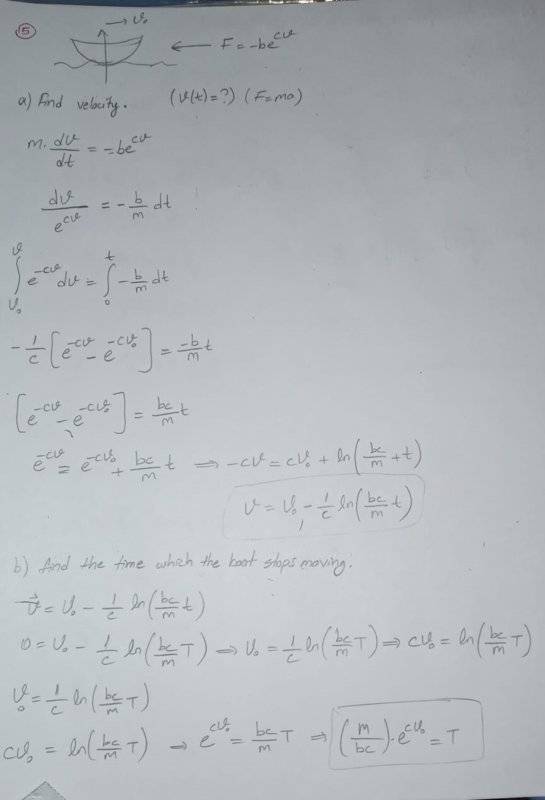 ⑤ → v₀ ← F = -be^{cv}
a) Find velocity. (v(t)=?) (F=ma)
m. dv/dt = -be^{cv}
dv/e^{cv} = -b/m dt
∫_{v₀}^{v} e^{-cv} dv = ∫_{0}^{t} -b/m dt
-1/c [e^{-cv} - e^{-cv₀}] = -b/m t
[e^{-cv} - e^{-cv₀}] = bc/m t
e^{-cv} = e^{-cv₀} + bc/m t ⇒ -cv = cv₀ + ln(bc/m + t)
v = v₀ - 1/c ln(bc/m t)
b) find the time which the boat stops moving.
v⃗ = v₀ - 1/c ln(bc/m t)
0 = v₀ - 1/c ln(bc/m T) ⇒ v₀ = 1/c ln(bc/m T) ⇒ cv₀ = ln(bc/m T)
v₀ = 1/c ln(bc/m T)
cv₀ = ln(bc/m T) → e^{cv₀} = bc/m T ⇒ (m/bc) · e^{cv₀} = T